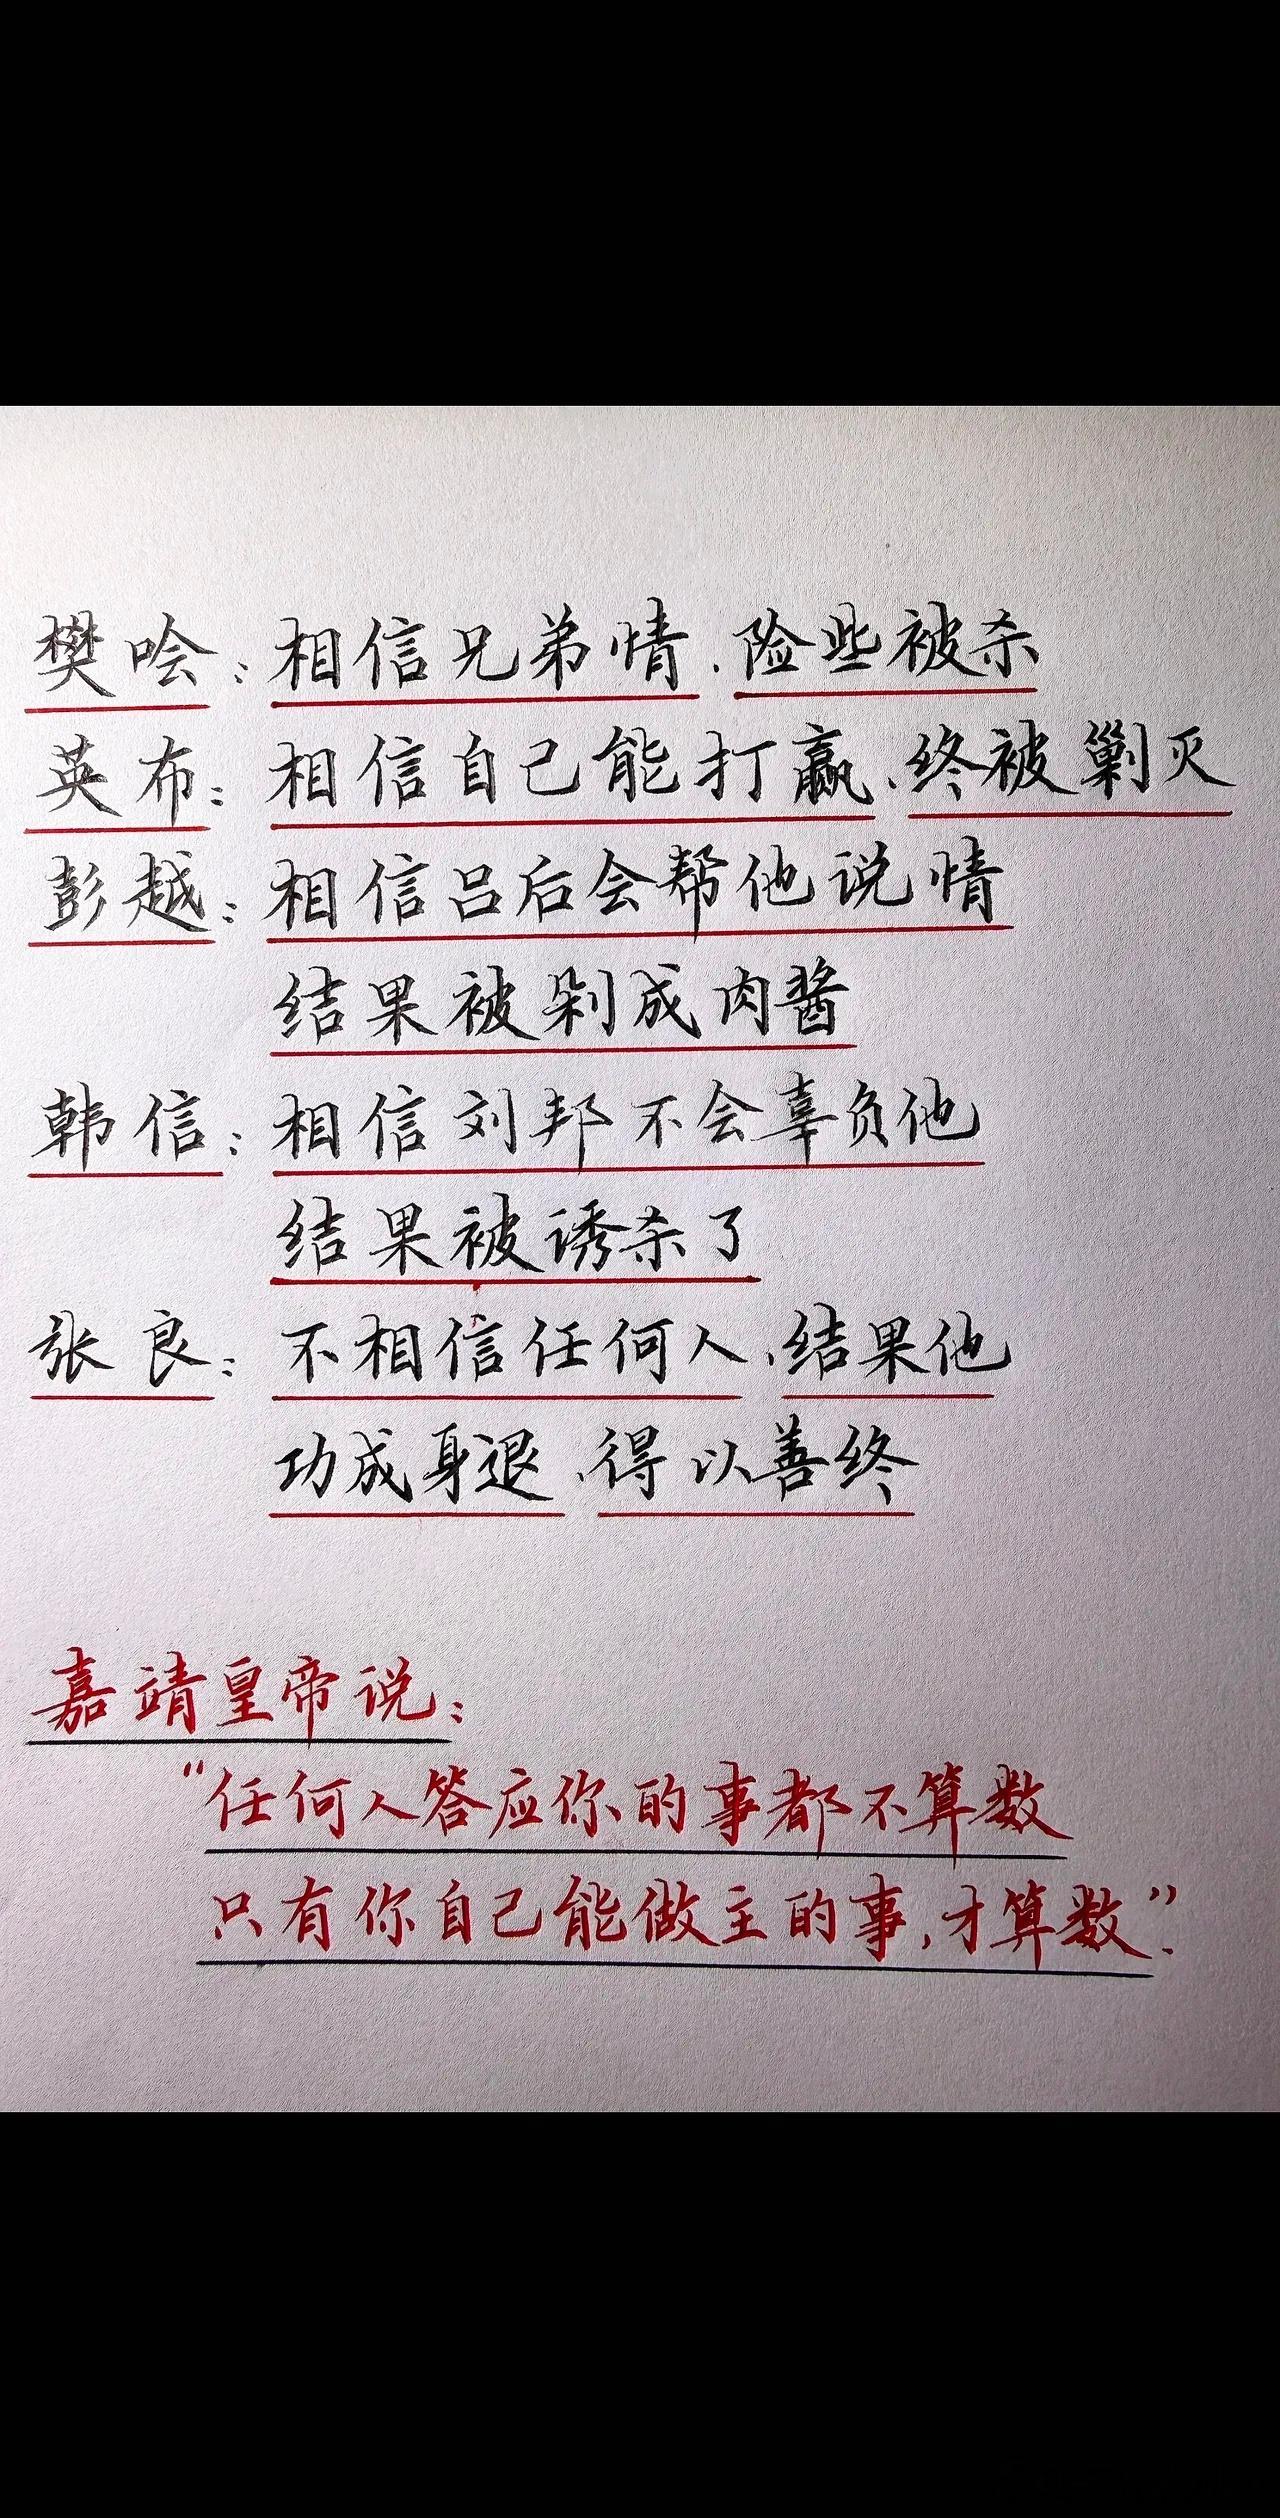 樊哙：相信兄弟情、险些被杀
英布：相信自己能打赢、终被剿灭
彭越：相信吕后会帮他说情
结果被剁成肉酱
韩信：相信刘邦不会辜负他
结果被诱杀了
张良：不相信任何人、结果他
功成身退、得以善终
嘉靖皇帝说：
“任何人答应你的事都不算数
只有你自己能做主的事，才算数”.